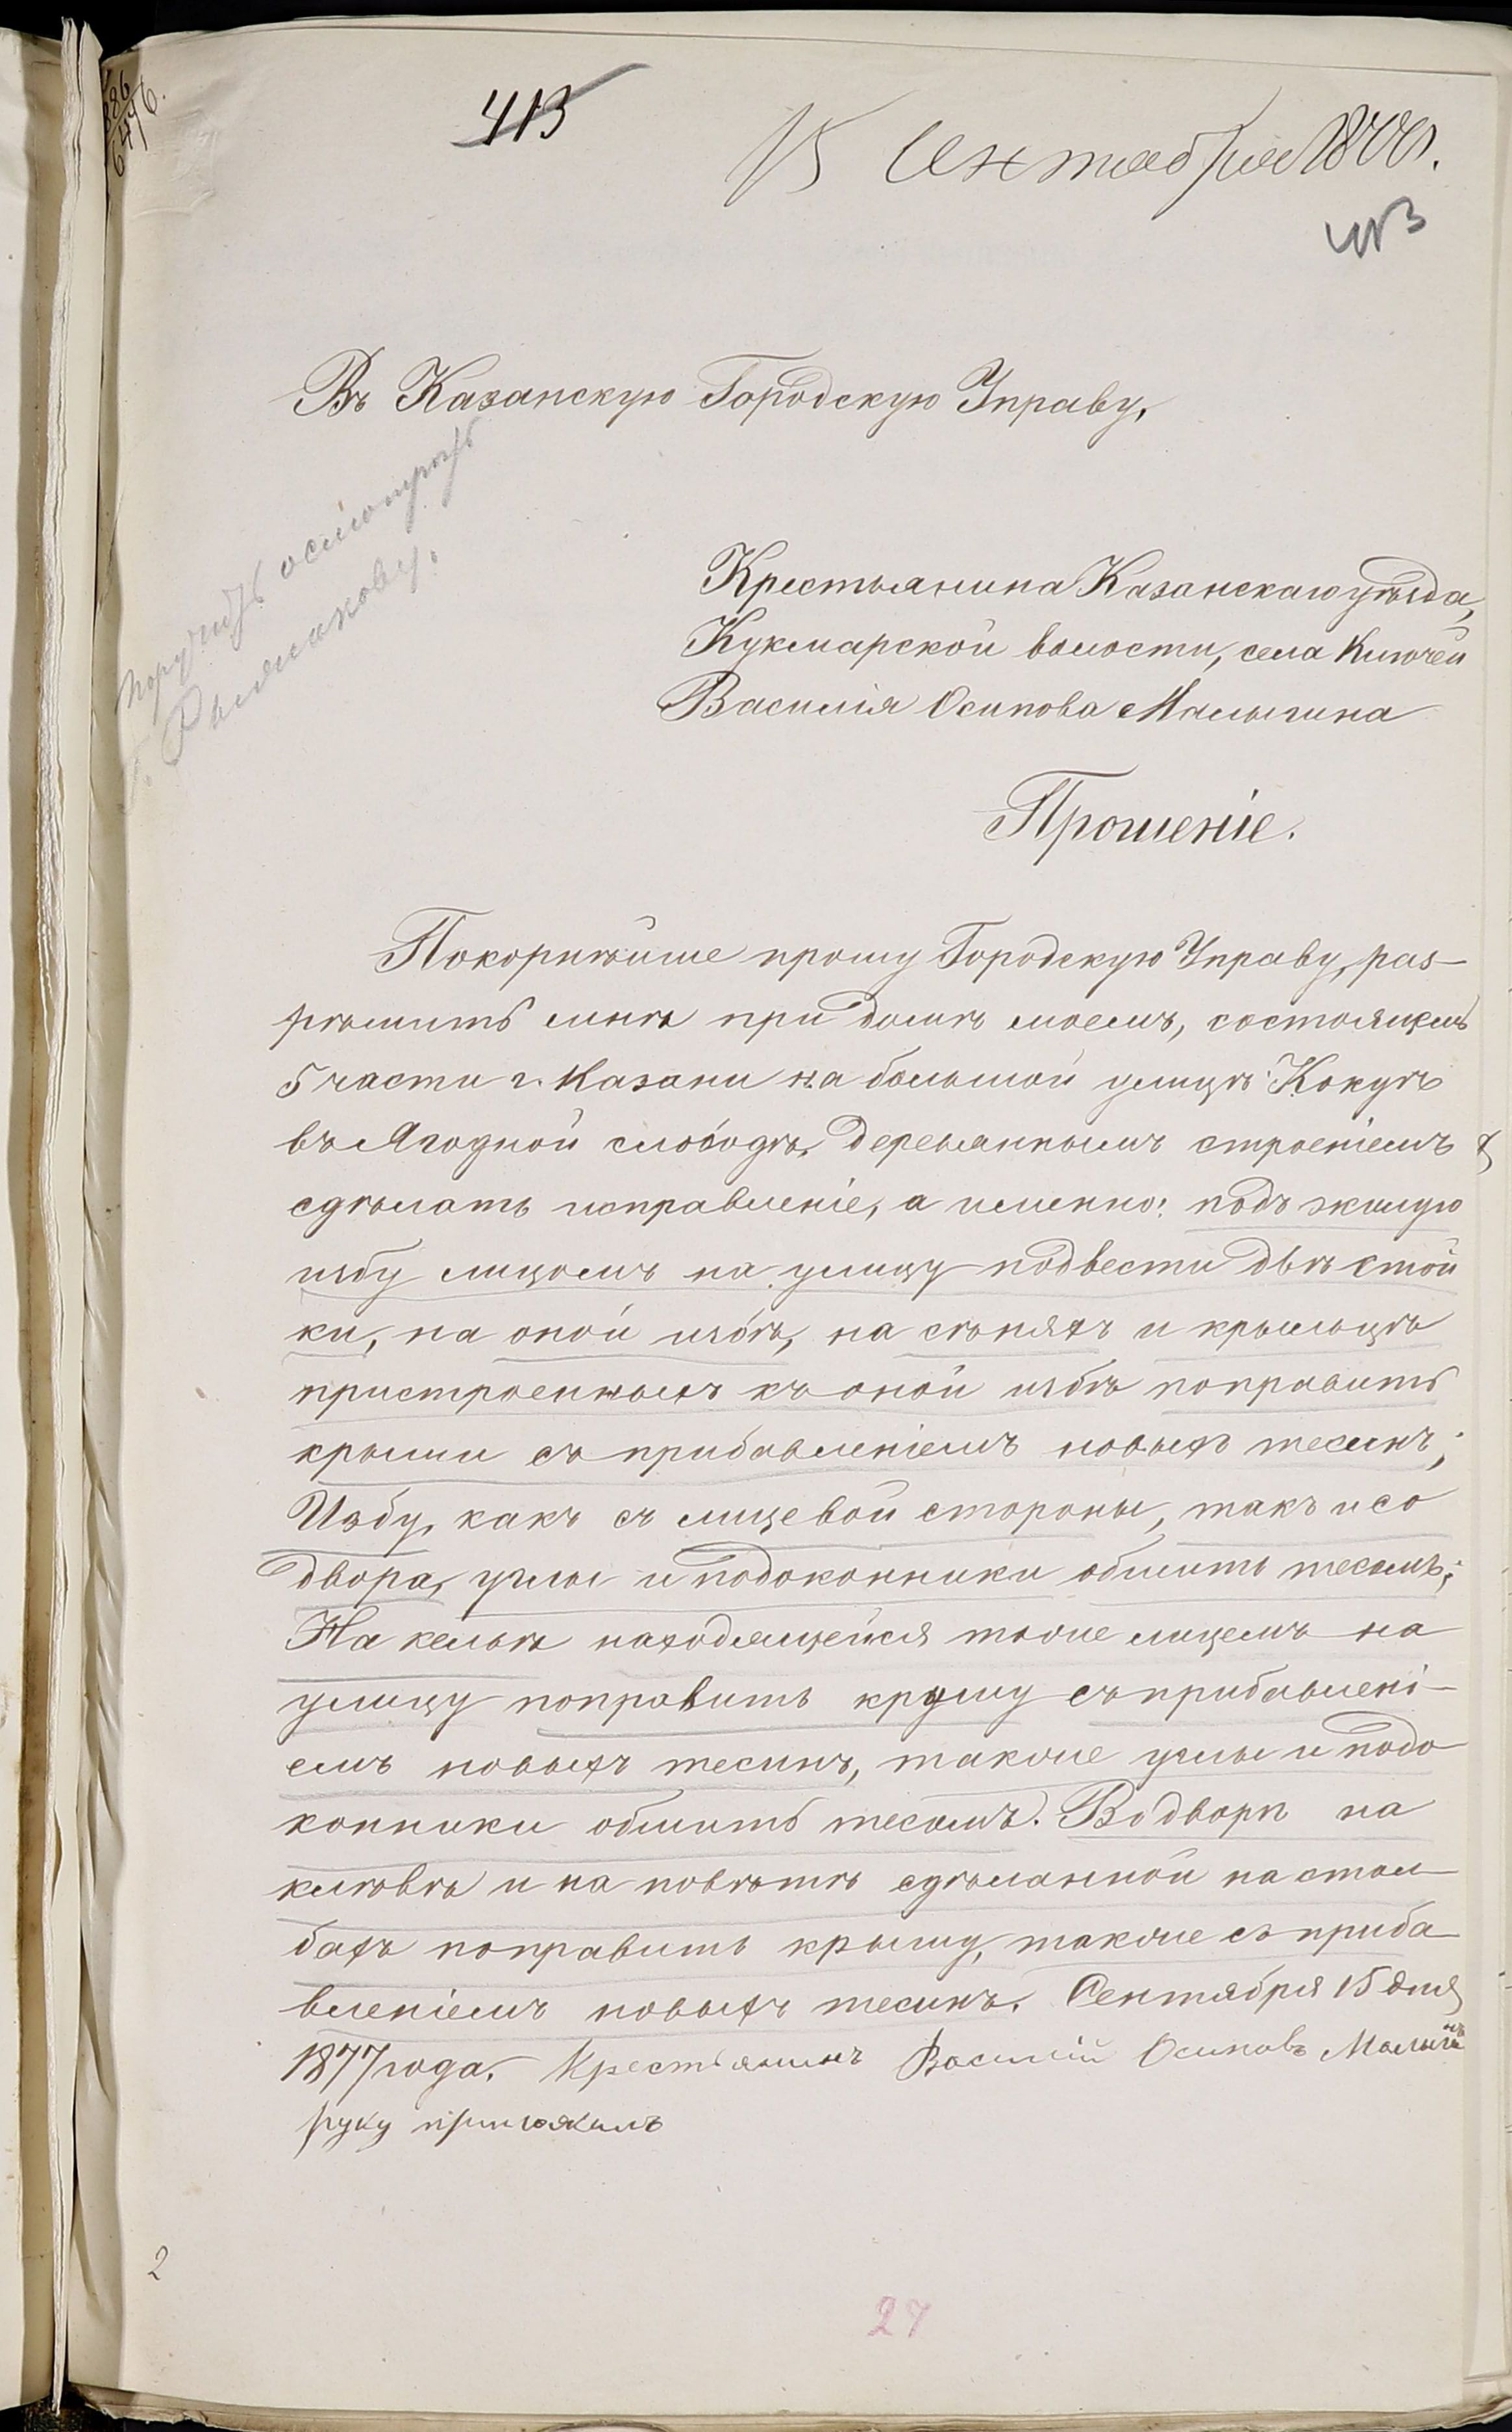 413
15 Сентября 1877.
413
Въ Казанскую Городскую Управу,
поручить осмотръ
Крестьянина Казанскаго уѣзда,
Кукмарской волости, села Ключей
Василія Осипова Малыгина
Прошеніе.
Покорнѣйше прошу Городскую Управу, раз-
рѣшить мнѣ при домѣ моемъ, состоящемъ
5 части г. Казани на большой улицѣ
въ Ягодной слободѣ, деревяннымъ строеніемъ
сдѣлать исправленіе, а именно: подъ жилую
избу лицомъ на улицу подвести двѣ стой
ки, на оной избѣ, на сѣняхъ и крыльцѣ
пристроенныхъ къ оной избѣ поправить
крыши съ прибавленіемъ новыхъ тесинъ;
Избу, какъ съ лицевой стороны, такъ и со
двора, углы и подоконники обшить тесомъ;
На кельѣ находящейся тоже лицемъ на
улицу поправить крышу съ прибавлені-
емъ новыхъ тесинъ, такоже углы и подо
конники обшить тесомъ. Во дворѣ на
хлѣвѣ и на повѣтѣ сдѣланной на стол
бахъ поправить крышу, такоже съ приба
вленіемъ новыхъ тесинъ. Сентября 15 дня
1877 года. Крестьянинъ Василій Осиповъ Малыгинъ
руку приложилъ
2
27